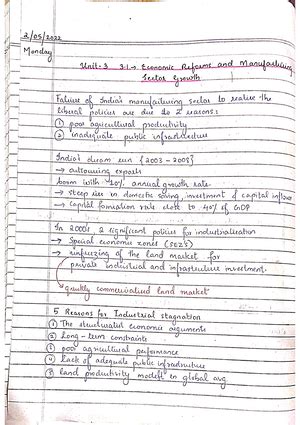 2/05/2022
Monday
Unit-3 3.1 → Economic Reforms and Manufacturing
Sector Growth
Failure of India's manufacturing sector to realise the
liberal policies are due to 2 reasons:
① poor agricultural productivity
② inadequate public infrastructure
India's dream run {2003-2008}
→ outcoming export
boom with 20% annual growth rate.
→ steep rise in domestic saving, investment & capital inflows
→ capital formation rate close to 40% of GDP
In 2000s 2 significant policies for industrialisation
→ Special economic zones (SEZ's)
→ of the land market for
private industrial and infrastructure investment.
quickly commercialised land market
5 Reasons for Industrial stagnation
① The structuralist economic arguments
② Long-term constraints
③ poor agricultural performance
④ Lack of adequate public infrastructure
⑤ land productivity modest in global avg.